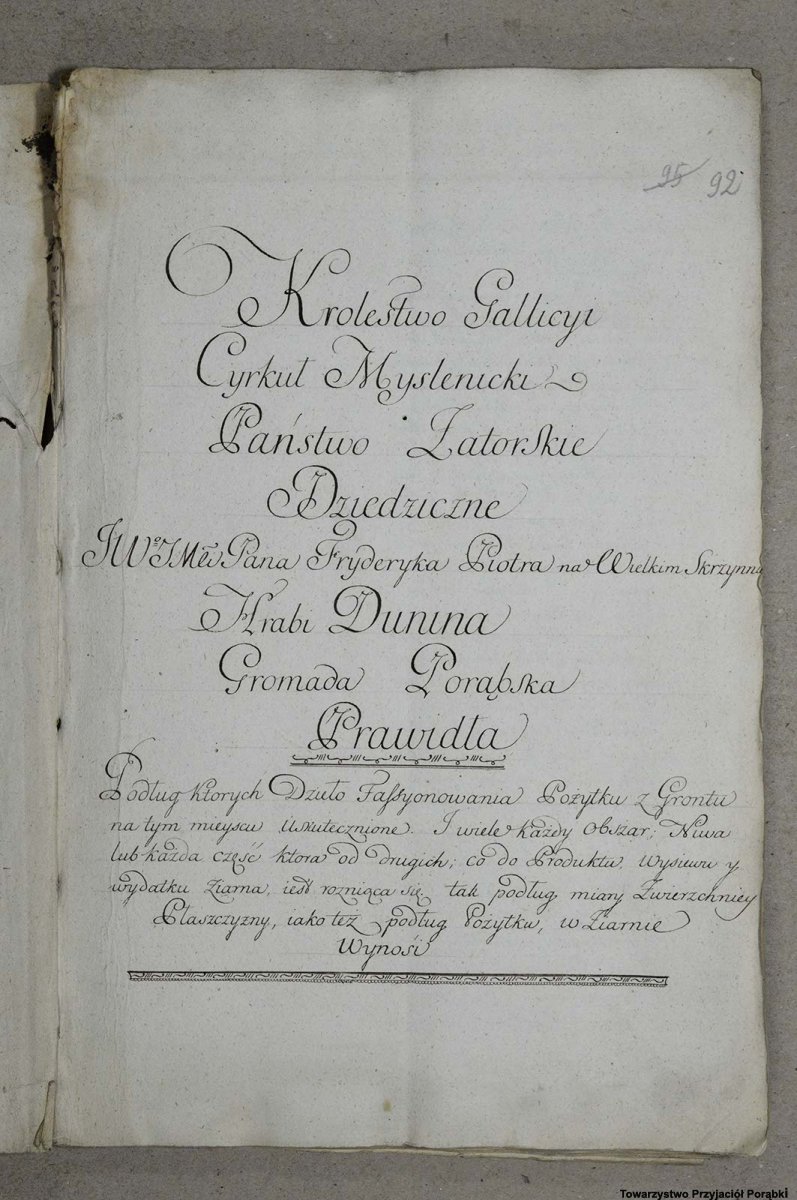 95 92
Krolestwo Gallicyi
Cyrkuł Myslenicki
Państwo Zatorskie
Dziedziczne
Pana Fryderyka Piotra na Wielkim Skrzynnie
Hrabi Dunina
Gromada Porąbska
Prawidła
Podług ktorych Dzuło Fassyonowania Pożytku z Grontu
na tym mieyscu uskutecznione. I wiele każdy obszar; Niwa
lub każda część ktora od drugich; co do Produktu, wysiewu y
wydatku ziarna, iest rozniąca się. tak podług miary Zwierzchniey
Płaszczyzny, iako też podług Pożytku, w Ziarnie
Wynośi
Towarzystwo Przyjaciół Porąbki